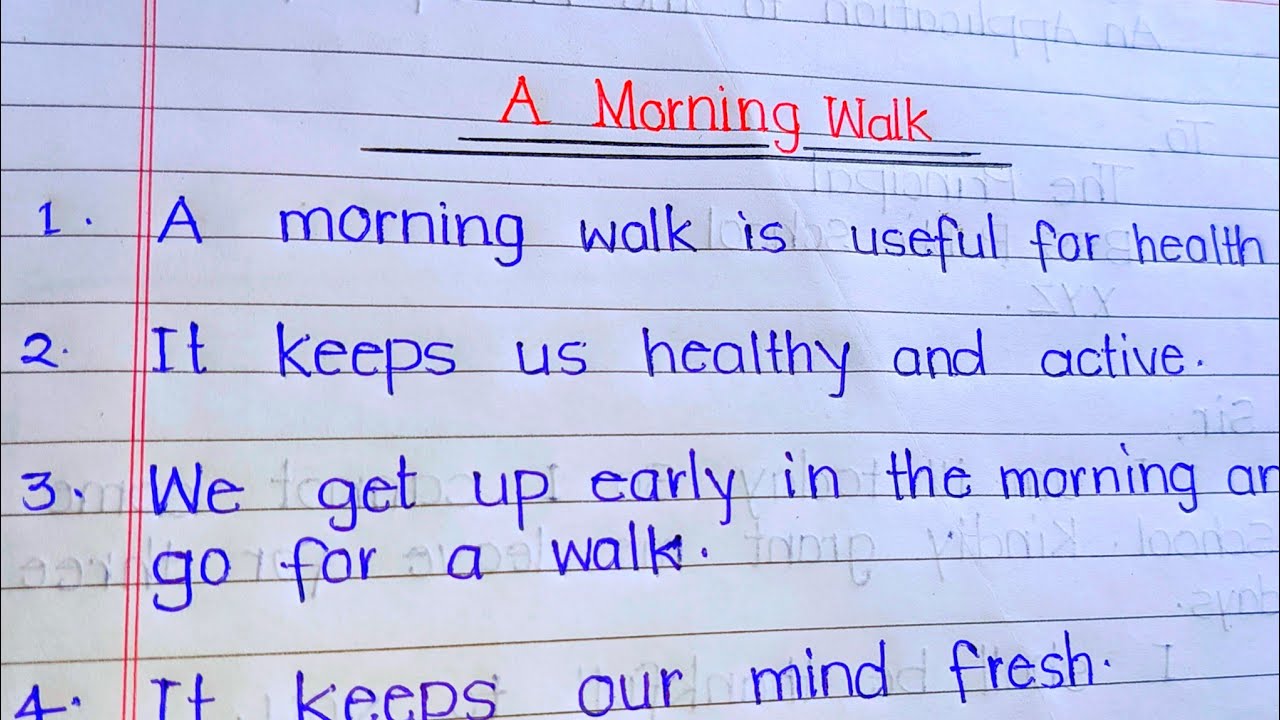 A Morning Walk
1. A morning walk is useful for health
2. It keeps us healthy and active.
3. We get up early in the morning an
go for a walk.
4. It keeps our mind fresh.